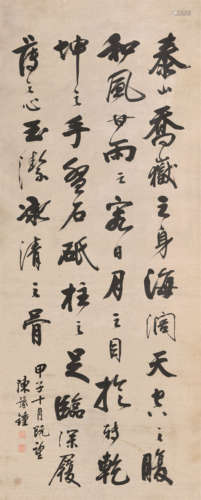 泰山喬嶽之身海闊天空之腹
和風甘雨之容日月之目旋轉乾
坤之手磐石砥柱之足臨深履
薄之心玉潔冰清之骨
甲子十月既望
陳豫鍾